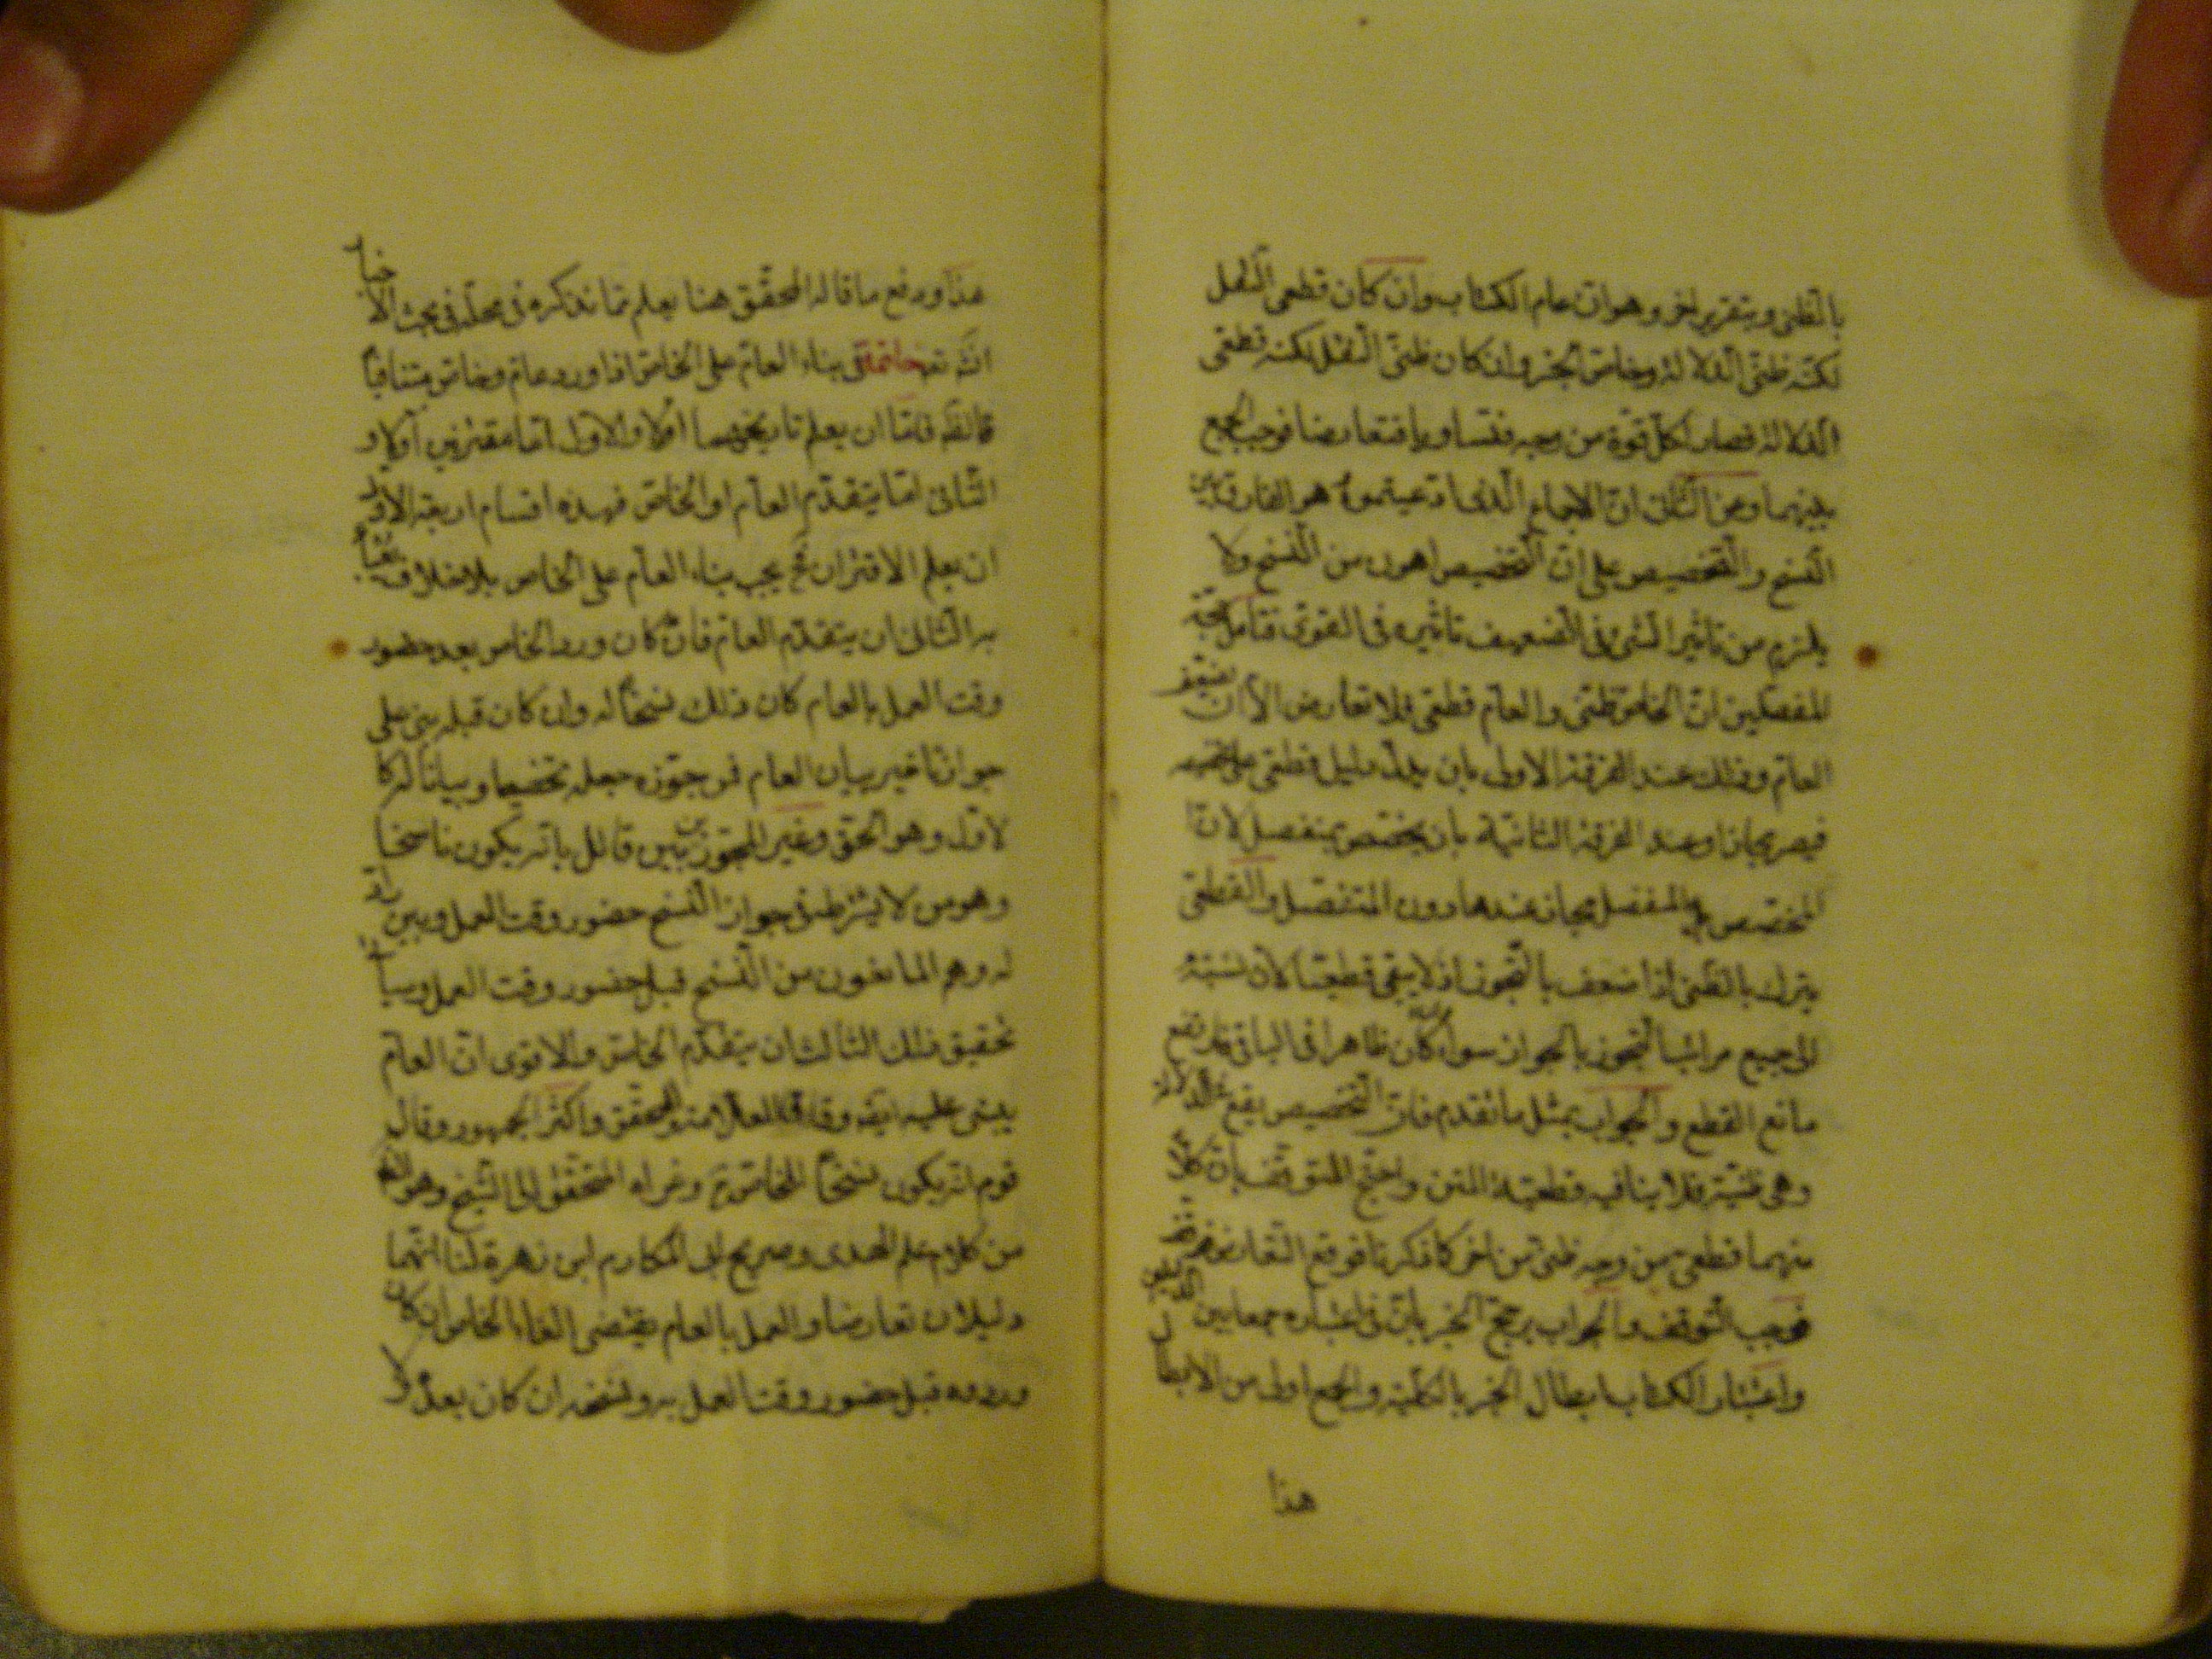 بالظنى وبتقرير اخر وهو ان عام الكتاب وان كان قطعى النقل
لكنه ظنى الدلالة وخاص الخبر وان كان ظنى النقل لكنه قطعى
الدلالة فصار لكل قوة من وجه فتساويا فتعارضا فوجب الجمع
بينهما وعن الثانى ان الاجماع الذى ادعيتموه هو الفارق بين
النسخ والتخصيص على ان التخصيص اهون من النسخ ولا
يلزم من تاثير الشئ فى الضعيف تاثيره فى القوى فتامل حجة
المفصلين ان الخاص ظنى والعام قطعى فلا تعارض الا ان يضعف
العام وذلك عند الفرقة الاولى بان يدل دليل قطعى على تخصيصه
فيصير مجازا وعند الفرقة الثانية بان يخصص بمنفصل لان
المخصص بالمنفصل مجاز عندها دون المتصل والقطعى
يترك بالظنى اذا ضعف بالتجوز اذ لا يبقى قطعيا لان نسبته
الى جميع مراتب التجوز بالجواز سواء كان ظاهرا فى الباقى فارتفع
مانع القطع والجواب بمثل ما تقدم فان التخصيص يقع على الدلالة
وهى ظنية فلا ينافيه قطعية المتن واحتج المتوقف بان كلا
منهما قطعى من وجه ظنى من اخر كما ذكرنا فوقع التعارض
فوجب التوقف والجواب يرجح الخبر بان فى اعتباره جمعا بين الدليلين
واعتبار الكتاب ابطال الخبر بالكلية والجمع اولى من الابطال
هذا
هذا ودفع ما قاله المحقق هنا يعلم مما نذكره فى محله فى بحث الاخبار
انشه تعه خاتمة فى بناء العام على الخاص اذا ورد عام وخاص متنافيا
فاما ان يعلم تاريخهما اولا والاول اما مقترنين اولا و
الثانى اما يتقدم العام او الخاص فهذه اقسام اربعة الاول
ان يعلم الاقتران فح يجب بناء العام على الخاص بلا خلاف
به الثانى ان يتقدم العام فان كان ورد الخاص بعد حضور
وقت العمل بالعام كان ذلك نسخا له وان كان قبله بنى على
جواز تاخير بيان العام فمن جوزه جعله تخصيصا وبيانا له كا
لاول وهو الحق وغير المجوزين بين قائل بانه يكون ناسخا
وهو من لا يشترط فى جواز النسخ حضور وقت العمل وبين راد
له وهم المانعون من النسخ قبل حضور وقت العمل وسياتى
تحقيق ذلك الثالث ان يتقدم الخاص والاقوى ان العام
يبنى عليه ايضه وفاقا للعلامة والمحقق واكثر الجمهور وقال
قوم انه يكون نسخا للخاص وعزاه المحقق الى الشيخ وهو الظ
من كلام علم الهدى وصريح ابى المكارم ابن زهرة لنا انهما
دليلان تعارضا والعمل بالعام يقتضى الغاء الخاص ان كان
وروده قبل حضور وقت العمل به ونسخه ان كان بعده ولا